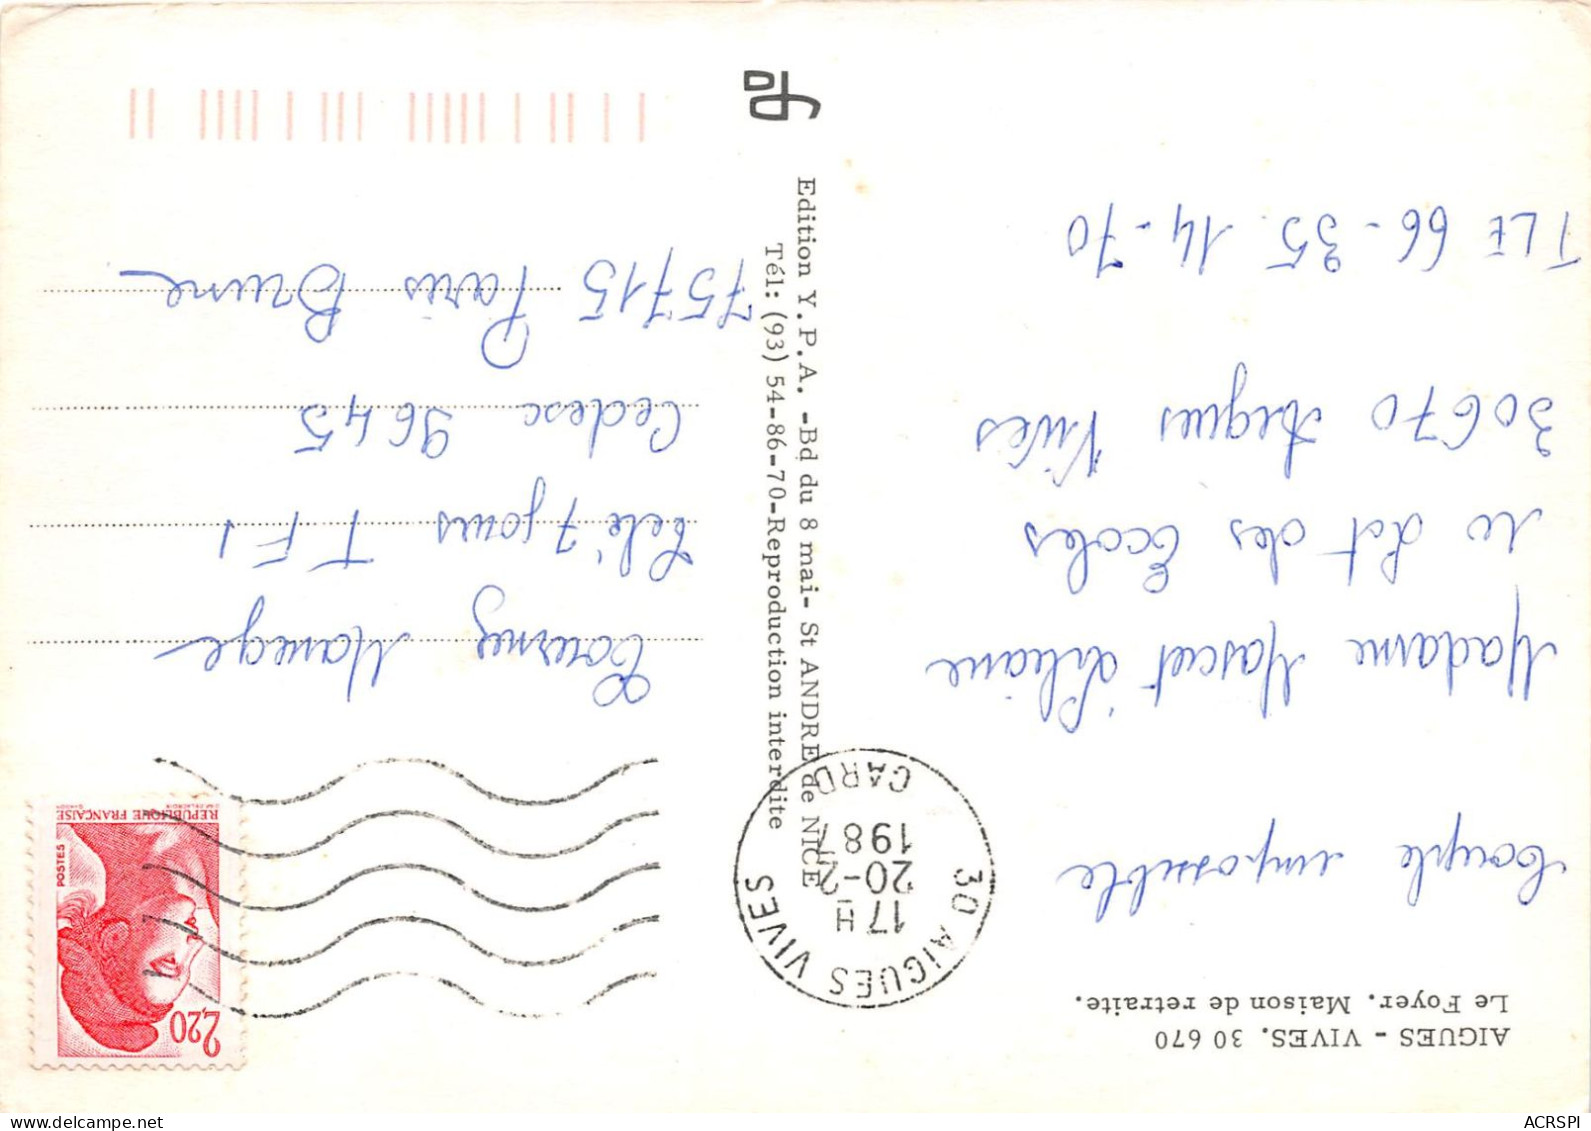 AIGUES - VIVES. 30 670
Le Foyer. Maison de retraite.
Couple impossible
Madame Mascut Liliane
10 Lot des Ecoles
30670 Aigues Vives
TLE 66-35.14-70
Edition Y.P.A. -Bd du 8 mai- St ANDRE de NICE
Tél: (93) 54-86-70-Reproduction interdite
30 AIGUES VIVES
17H
20-2
1987
GARD
2,20
POSTES
REPUBLIQUE FRANÇAISE
Tournez Manege
Télé 7 jours TF1
Cedex 9645
75715 Paris Brune
ACRSPI